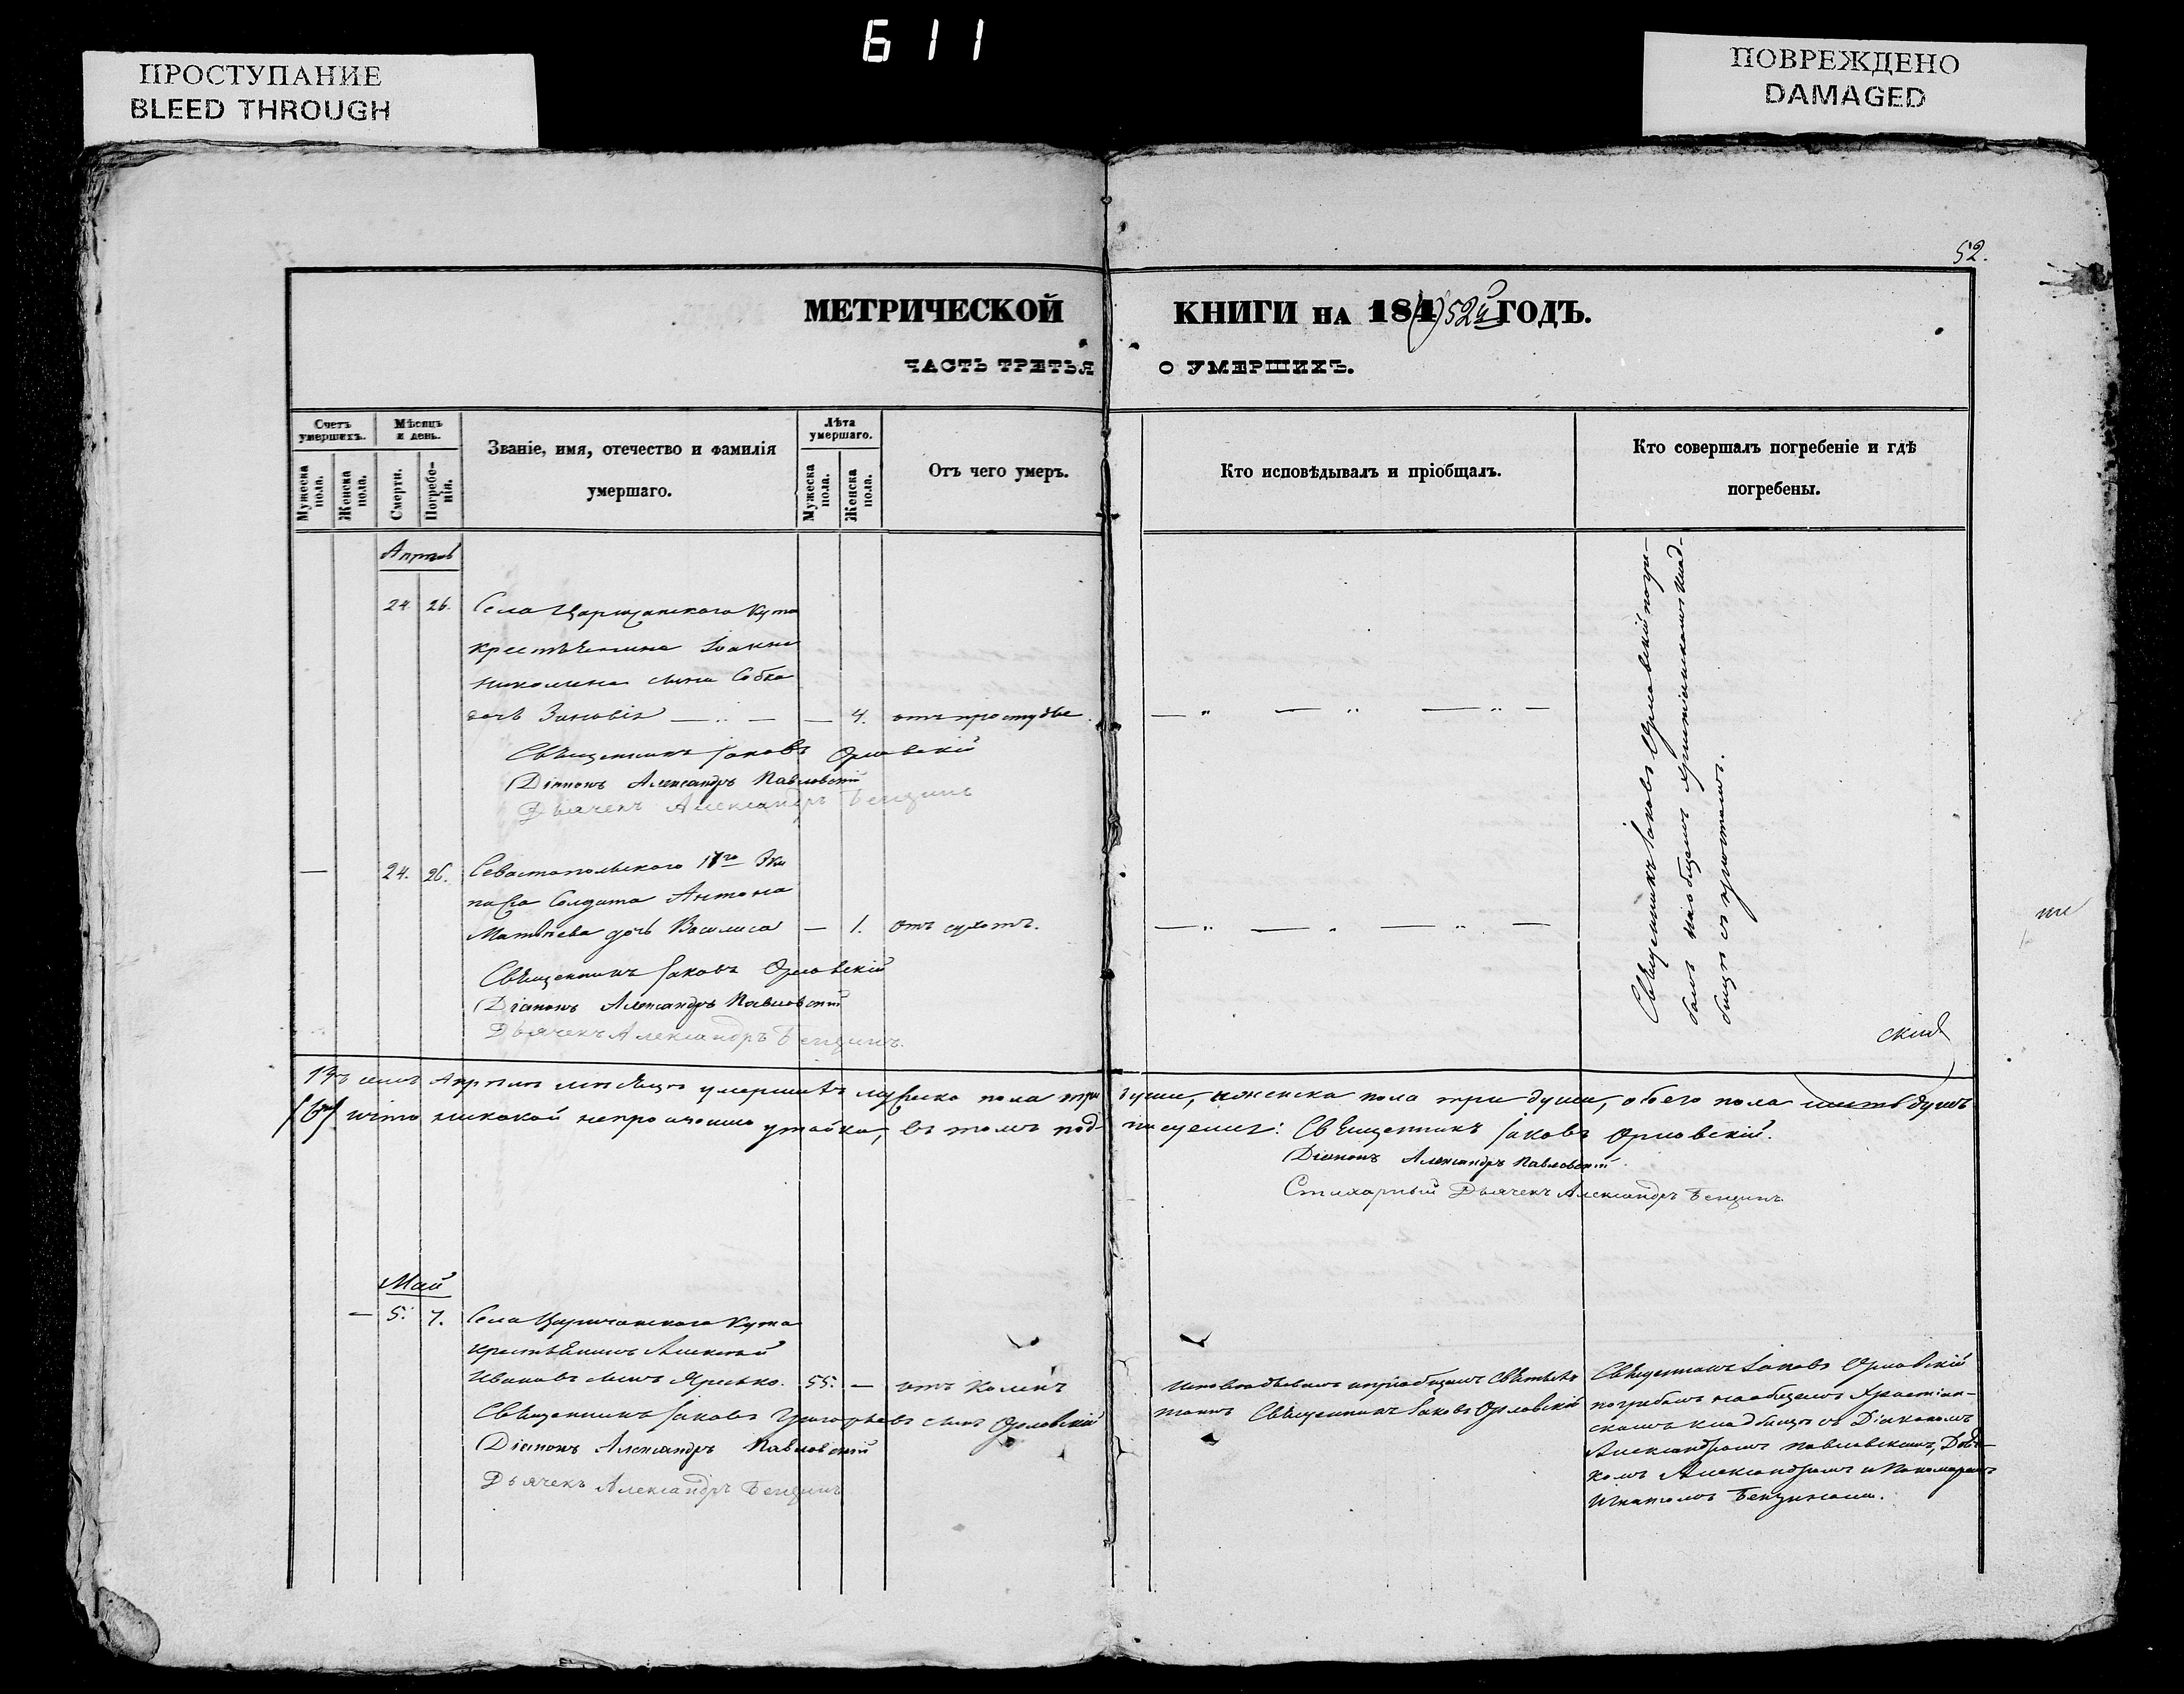 611
ПРОСТУПАНИЕ
BLEED THROUGH
ПОВРЕЖДЕНО
DAMAGED
52.
МЕТРИЧЕСКОЙ КНИГИ НА 184(1)52й ГОДЪ.
ЧАСТЬ ТРЕТЬЯ О УМЕРШИХЪ.
Счетъ умершихъ.
Мужеска пола.
Женска пола.
Мѣсяцъ и день.
Смерти.
Погребенія.
Званіе, имя, отечество и фамилія
умершаго.
Лѣта умершаго.
Мужеска пола.
Женска пола.
Отъ чего умеръ.
Кто исповѣдывалъ и пріобщалъ.
Кто совершалъ погребеніе и гдѣ
погребены.
Апрель
24. 26. Села Царичанского Кута
крестьянина Іоанна
сына Собка
дочь Зиновія — 4. отъ простуды
Священникъ Іаковъ Орловскій
Діаконъ Александръ Павловскій
Дьячекъ Александръ Бенцинъ
— 24. 26. Севастопольского 17го Эки
пажа Солдата Антона
Матвѣева дочь Василиса — 1. отъ сухотъ.
Священникъ Іаковъ Орловскій
Діаконъ Александръ Павловскій
Дьячекъ Александръ Бенцинъ.
Священникъ Іаковъ Орловскій погре-
балъ на общемъ христіанскомъ клад-
бищѣ съ причтомъ.
умершихъ мужеска пола три души, и женска пола три души, обего пола шесть душъ
(6) и что никакой непроизошло утайки, въ томъ подписуемся: Священникъ Іаковъ Орловскій.
Діаконъ Александръ Павловскій
Стихарный Дьячекъ Александръ Бенцинъ
Май
— 5. 7. Села Царичанского Кута
крестьянинъ Алексей
Ивановъ сынъ 55. —
Священникъ Іаковъ Григорьевъ сынъ Орловскій
Діаконъ Александръ Павловскій
Дьячекъ Александръ Бенцинъ
Исповѣдывалъ и пріобщалъ
Священникъ Іаковъ Орловскій
Священникъ Іаковъ Орловскій
погребалъ на общемъ Христіан-
скомъ кладбищѣ съ Діакономъ
Александромъ Павловскимъ, Дьяч-
комъ Александромъ и Пономаремъ
Бенцинами.